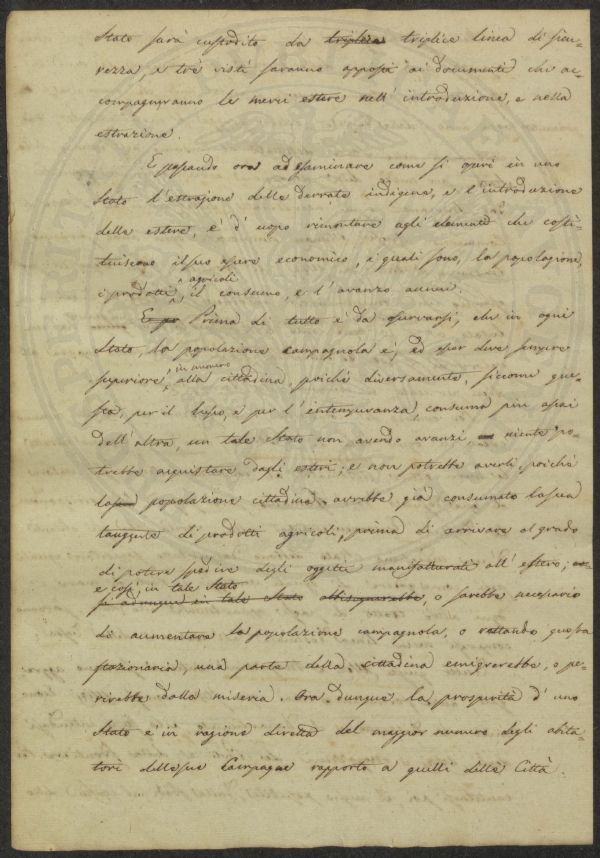 Stato sarà custodito da triplice triplice linea di sicu-
rezza, e trè visti saranno apposti ai documenti che ac-
compagneranno le merci estere nell'introduzione, e nella
estrazione.
E passando ora ad esaminare come si operi in uno
Stato l'estrazione delle derrate indigene, e l'introduzione
delle estere, è d'uopo rimontare agli elementi che costi-
tuiscono il suo essere economico, i quali sono, la popolazione,
agricoli
i prodotti, il consumo, e l'avanzo annui.
E pr Prima di tutto è da osservarsi, che in ogni
Stato, la popolazione campagnola è, ed esser deve sempre
in numero
superiore, alla cittadina, poiché diversamente, siccome que-
sta, per il lusso, e per l'intemperanza, consuma più assai
dell'altra, un tale Stato non avendo avanzi, niente po-
trebbe acquistare dagli esteri; e non potrebbe averli, poiché
la popolazione cittadina avrebbe già consumato la sua
tangente di prodotti agricoli, prima di arrivare al grado
di potere spedire degli oggetti manifatturati all'estero;
e così in tale Stato
se adunque in tale Stato abbisognerebbe, o sarebbe necessario
di aumentare la popolazione campagnola, o restando questa
stazionaria, una parte della cittadina emigrerebbe, o pe-
rirebbe dalla miseria. Ora dunque la prosperità d'uno
Stato è in ragione diretta del maggior numero degli abita-
tori delle sue Campagne rapporto a quelli delle Città.